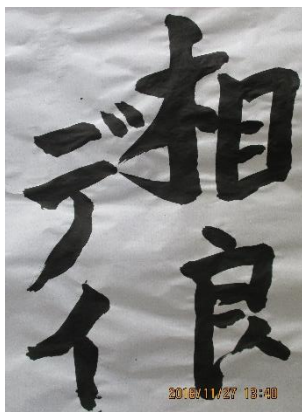 相良
デイ
2018/11/27 13:40